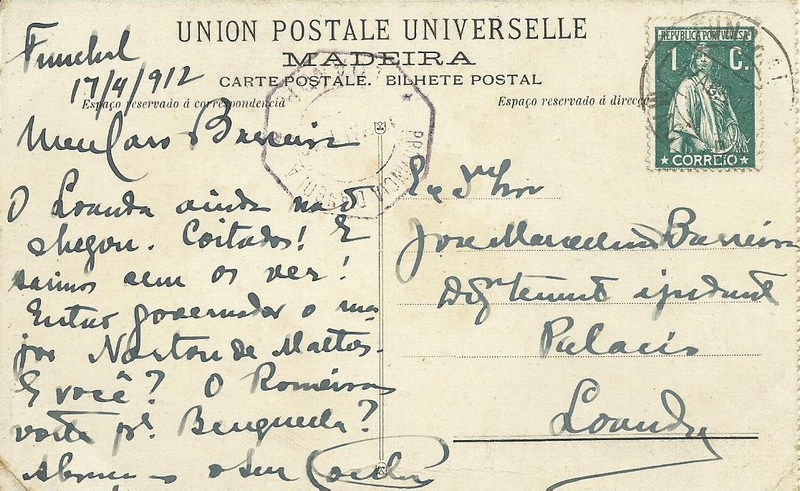 UNION POSTALE UNIVERSELLE
MADEIRA
CARTE POSTALE. BILHETE POSTAL
Espaço reservado á correspondencia
Espaço reservado á direcç
REPVBLICA PORTVGVESA
1 C.
CORREIO
Funchal
17/4/912
Meu Caro Barreira
O Loanda ainda não
chegou. Coitados! E
saimos sem os ver!
Então governador o ma
jor Norton de Mattos.
E você? O Romeiras
volta pª Benguela?
o seu Coelho
Exmo Snr
Jose Marcelino Barreira
Digmo tenente ajudante
Palacio
Loanda